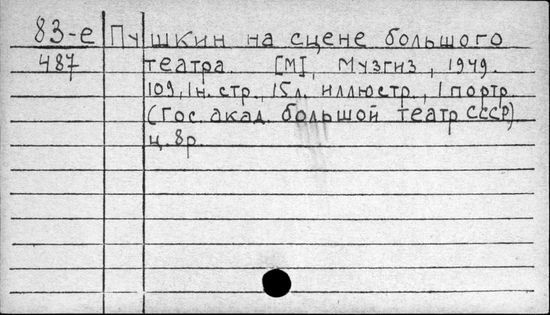 83-е Пушкин на сцене большого
487 театра. [М], Музгиз, 1949.
109, 1н. стр., 15л. иллюстр., 1 портр
(Гос. акад. большой театр СССР)
ц. 8р.